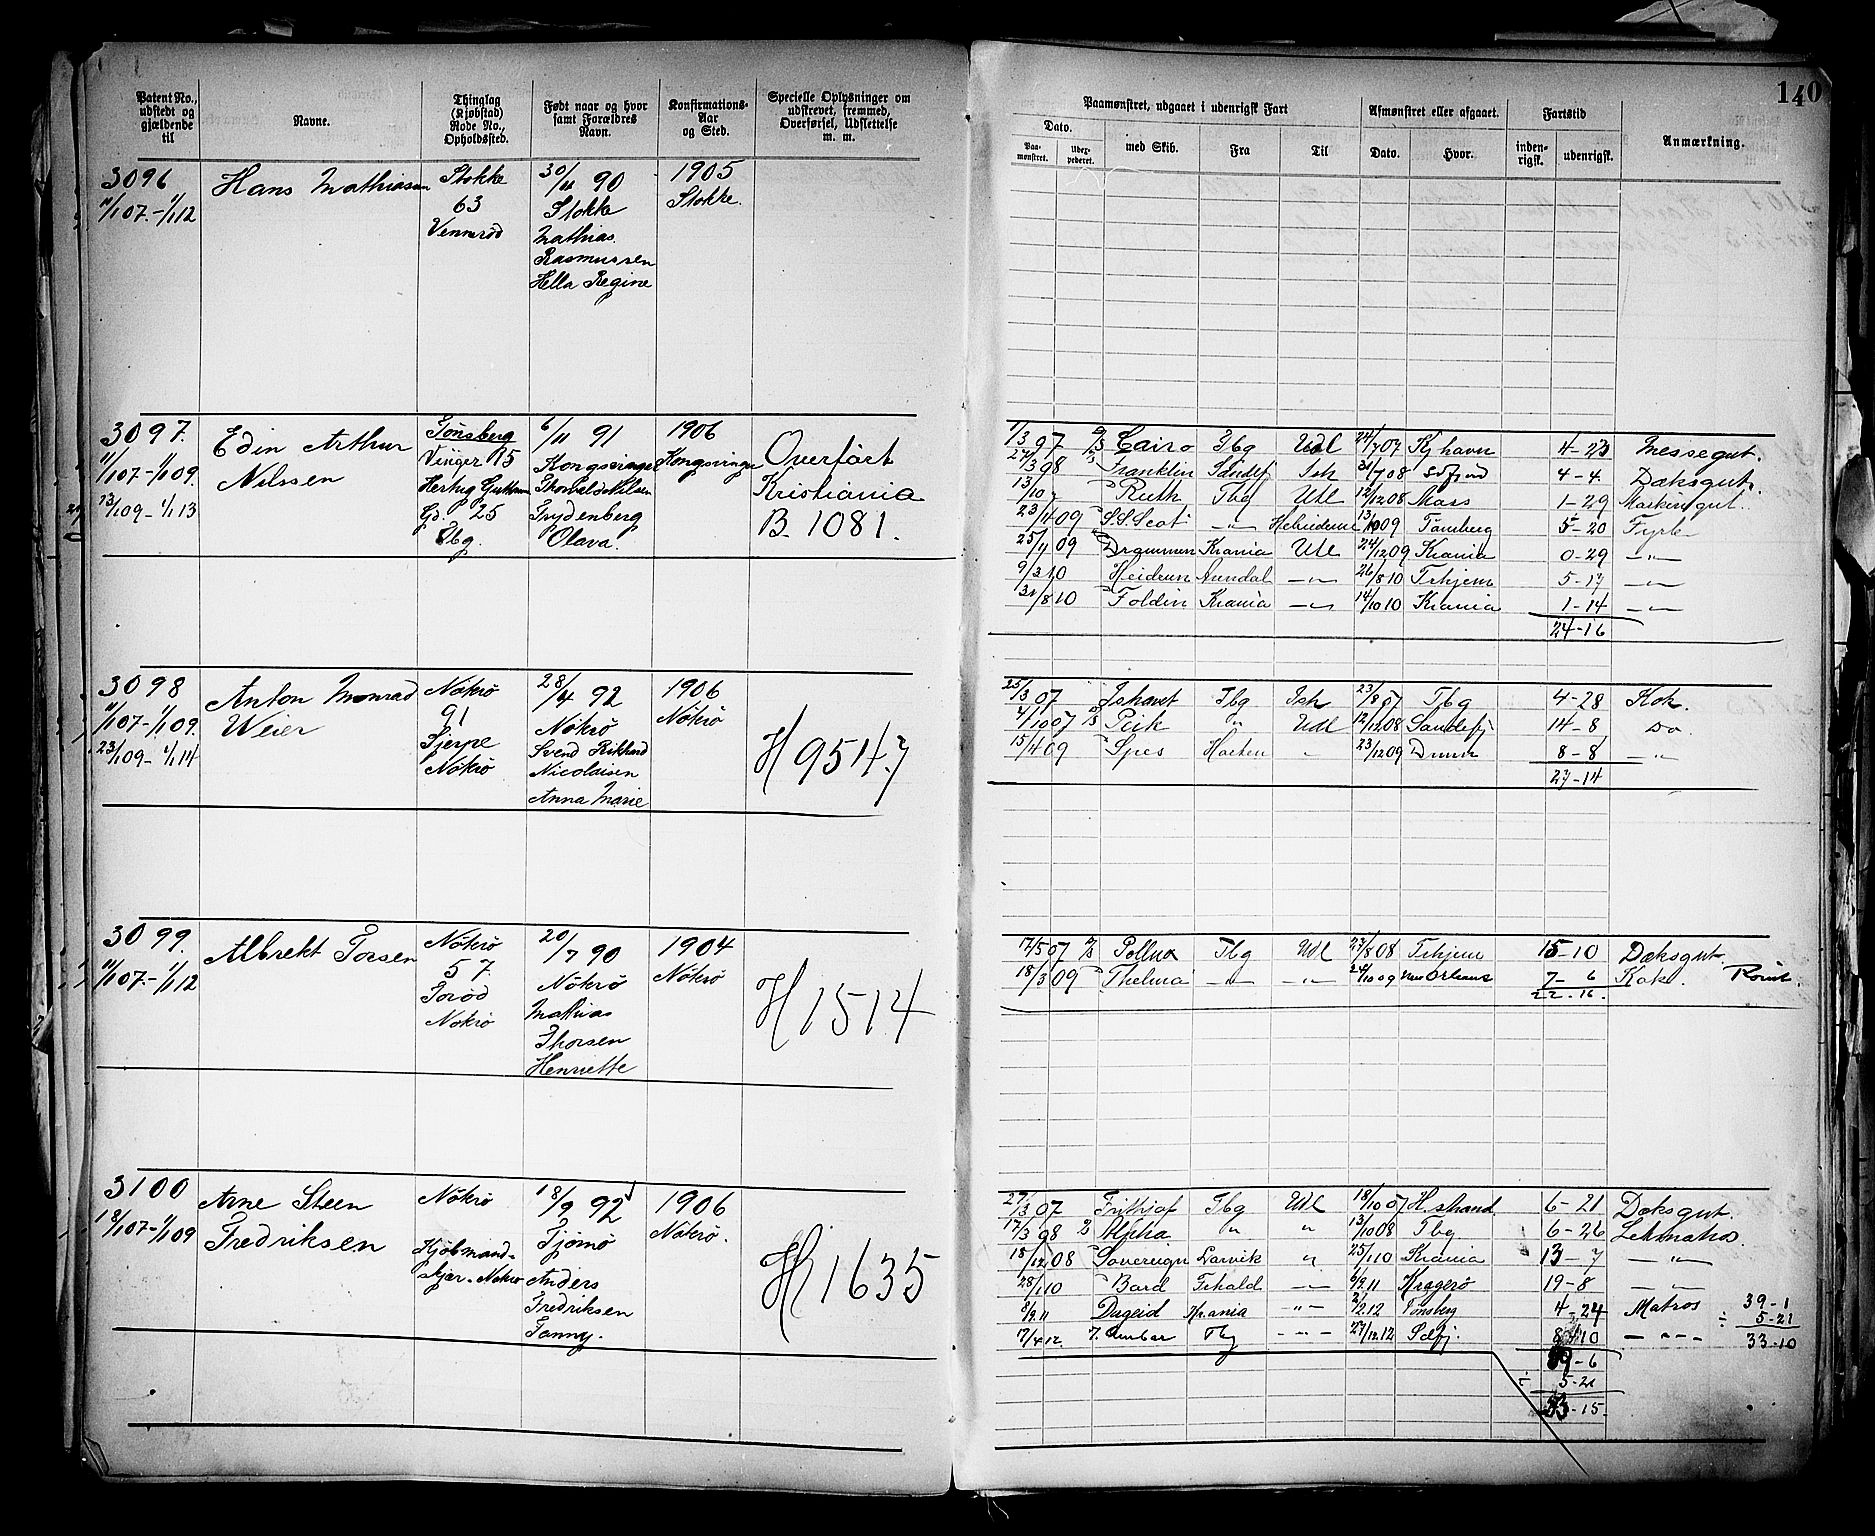 140
Patent No., udstedt og gjældende til
Navne.
Thinglag (Kjøbstad) Rode No., Opholdssted.
Født naar og hvor samt Forældres Navn.
Konfirmations-Aar og Sted.
Specielle Oplysninger om udskrevet, fremmed, Overførsel, Udslettelse m. m.
Paamønstret, udgaaet i udenrigsk Fart
Afmønstret eller afgaaet.
Fartstid
Anmærkning.
Dato.
Paa-mønstret.
med Skib.
Fra
Til
Dato.
Hvor.
inden-rigsk.
udenrigsk.
3096
11/1 07.-1/1 12
Hans Mathiasen
Stokke
63
Vennerød
30/11 90
Stokke
Mathias
Rasmussen
Hella Regine
1905
Stokke.
3097.
11/1 07-1/1 09.
13/1 09-1/1 13
Edin Arthur
Nilssen
Tønsberg
Vinger 15
Gd. 25
6/11 91
Kongsvinger
Thorvald Nilsen
Frydenberg
Olava.
1906
Kongsvinger
Overført
Kristiania
B. 1081.
Cairo Tbg Udl 24/7 07 Kjhavn 4-23 Messegut.
Franklin Sandef Ish 31/7 08 4-4. Dæksgut.
Ruth Tbg Udl 12/12 08 Moss 1-29 Maskingut.
23/4 09 Tønsberg 5-20 Fyrb
25/11 09 Drammen Krania Udl 24/12 09 Krania 0-29 -"-
9/3 10 Heidrun Arendal -"- 26/8 10 Trhjem 5-17 -"-
31/8 10 Foldin Krania -"- 14/10 10 Krania 1-14 -"-
24-16
3098
11/1 07-1/1 09.
23/1 09-1/1 14
Anton Monrad
Weier
Nøkrø
91
Sjerpe
Nøkrø
28/4 92
Nøkrø
Svend Rikhard
Nicolaisen
Anna Marie
1906
Nøkrø
H 9514.7
25/3 07 Ishavet Tbg Ish 23/8 07 Tbg 4-28 Kok.
4/10 07 Peik " Udl 12/12 08 Sandefj 14-8 Do.
15/4 09 Spes " 23/12 09 Dmn 8-8 -"-
27-14
3099.
11/1 07-1/1 12
Albrekt Torsen
Nøkrø
57
Torød
Nøkrø
20/7 90
Nøkrø
Mathias
Thorsen
Henriette
1904
Nøkrø
H 1514
17/5 07 Pollux Tbg Udl 27/8 08 Trhjem 15-10 Dæksgut.
18/3 09 Thelma -"- -"- 24/10 09 New Orleans 7-6 Kok. Rømt.
22-16.
3100
18/1 07-1/1 09
Arne Steen
Fredriksen
Nøkrø
Kjøbmand-
skjær-Nøkrø
18/9 92
Tjømø
Anders
Fredriksen
Fanny.
1906
Nøkrø.
H 1635
27/3 07 Frithjof Tbg Udl 18/10 07 H.strand. 6-21 Dæksgut.
17/3 98 Alpha " " 13/10 08 Tbg. 6-26 Letmatros.
18/12 08 Sovereign Larvik " 25/1 10 Krania 13-7 -"-
28/1 10 Bard Frhald -"- 6/9 11 Kragerø 19-8 -"-
8/9 11 Dageid Krania -"- 2/2 12 Tønsberg 4-24 Matros 39-1
÷ 5-21
17/4 12. Tbg -"- 27/12 12 8-10 -"- 33-10
39-6
÷ 5-21
33-15.